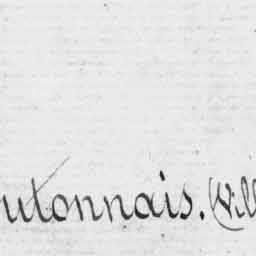 utonnais. (Vill